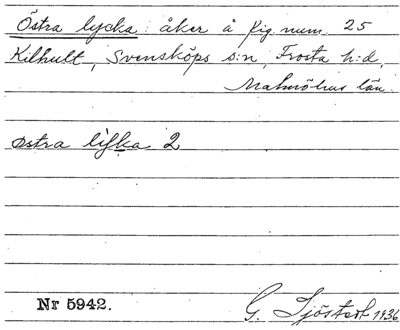 Östra lycka : åker å fig. num. 25
Kilhult, Svensköps s:n, Frosta h:d,
Malmöhus län.
östra lỳka 2
Nr 5942.
G. Sjöstedt 1936